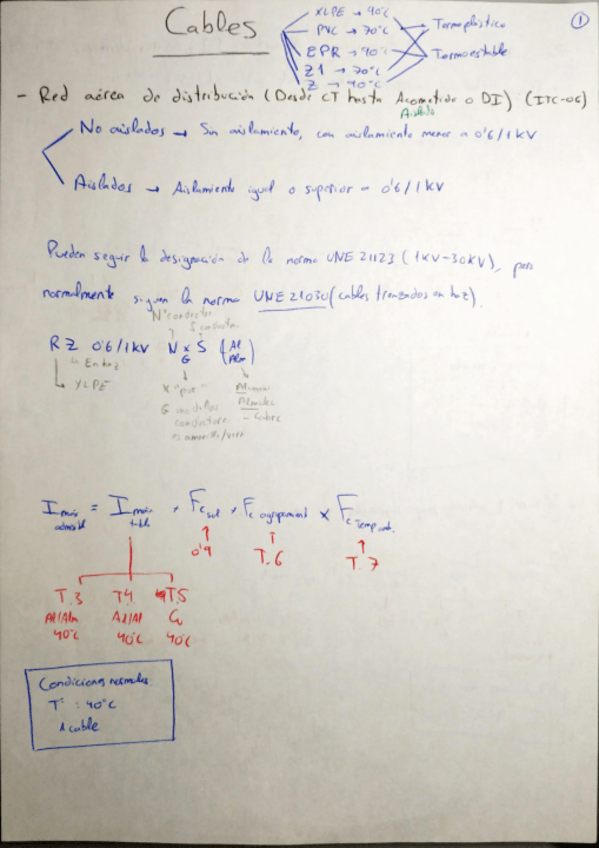 Cables
①
XLPE → 90°C
PVC → 70°C
EPR → 90°C
Z1 → 70°C
Z → 90°C
Termoplástico
Termoestable
- Red aérea de distribución (Desde CT hasta Acometida o DI) (ITC-06)
Aislado
No aislados → Sin aislamiento, con aislamiento menor a 0'6/1KV
Aislados → Aislamiento igual o superior a 0'6/1KV
Pueden seguir la designación de la norma UNE 21123 (1KV-30KV), pero
normalmente siguen la norma UNE 21030 (cables trenzados en haz).
Nº conductor
S conductor
RZ 0'6/1KV N x S (Al
G Alm)
En haz
XLPE
X "por"
G
conductores
es amarillo/verde
Almelec
- Cobre
Imáx admisible = Imáx tabla x Fc sol x Fc agrupamient x Fc Temp amb.
0'9
T.6
T.7
T.3 T4 T.5
Al/Alm Al/Al Cu
40°C 40°C 40°C
Condiciones normales
Tª : 40°C
1 cable